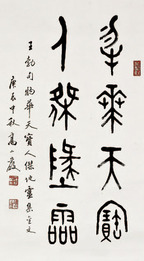 物華天寶
人傑地靈
王勃句物華天寶人傑地靈集金文
庚子中秋高